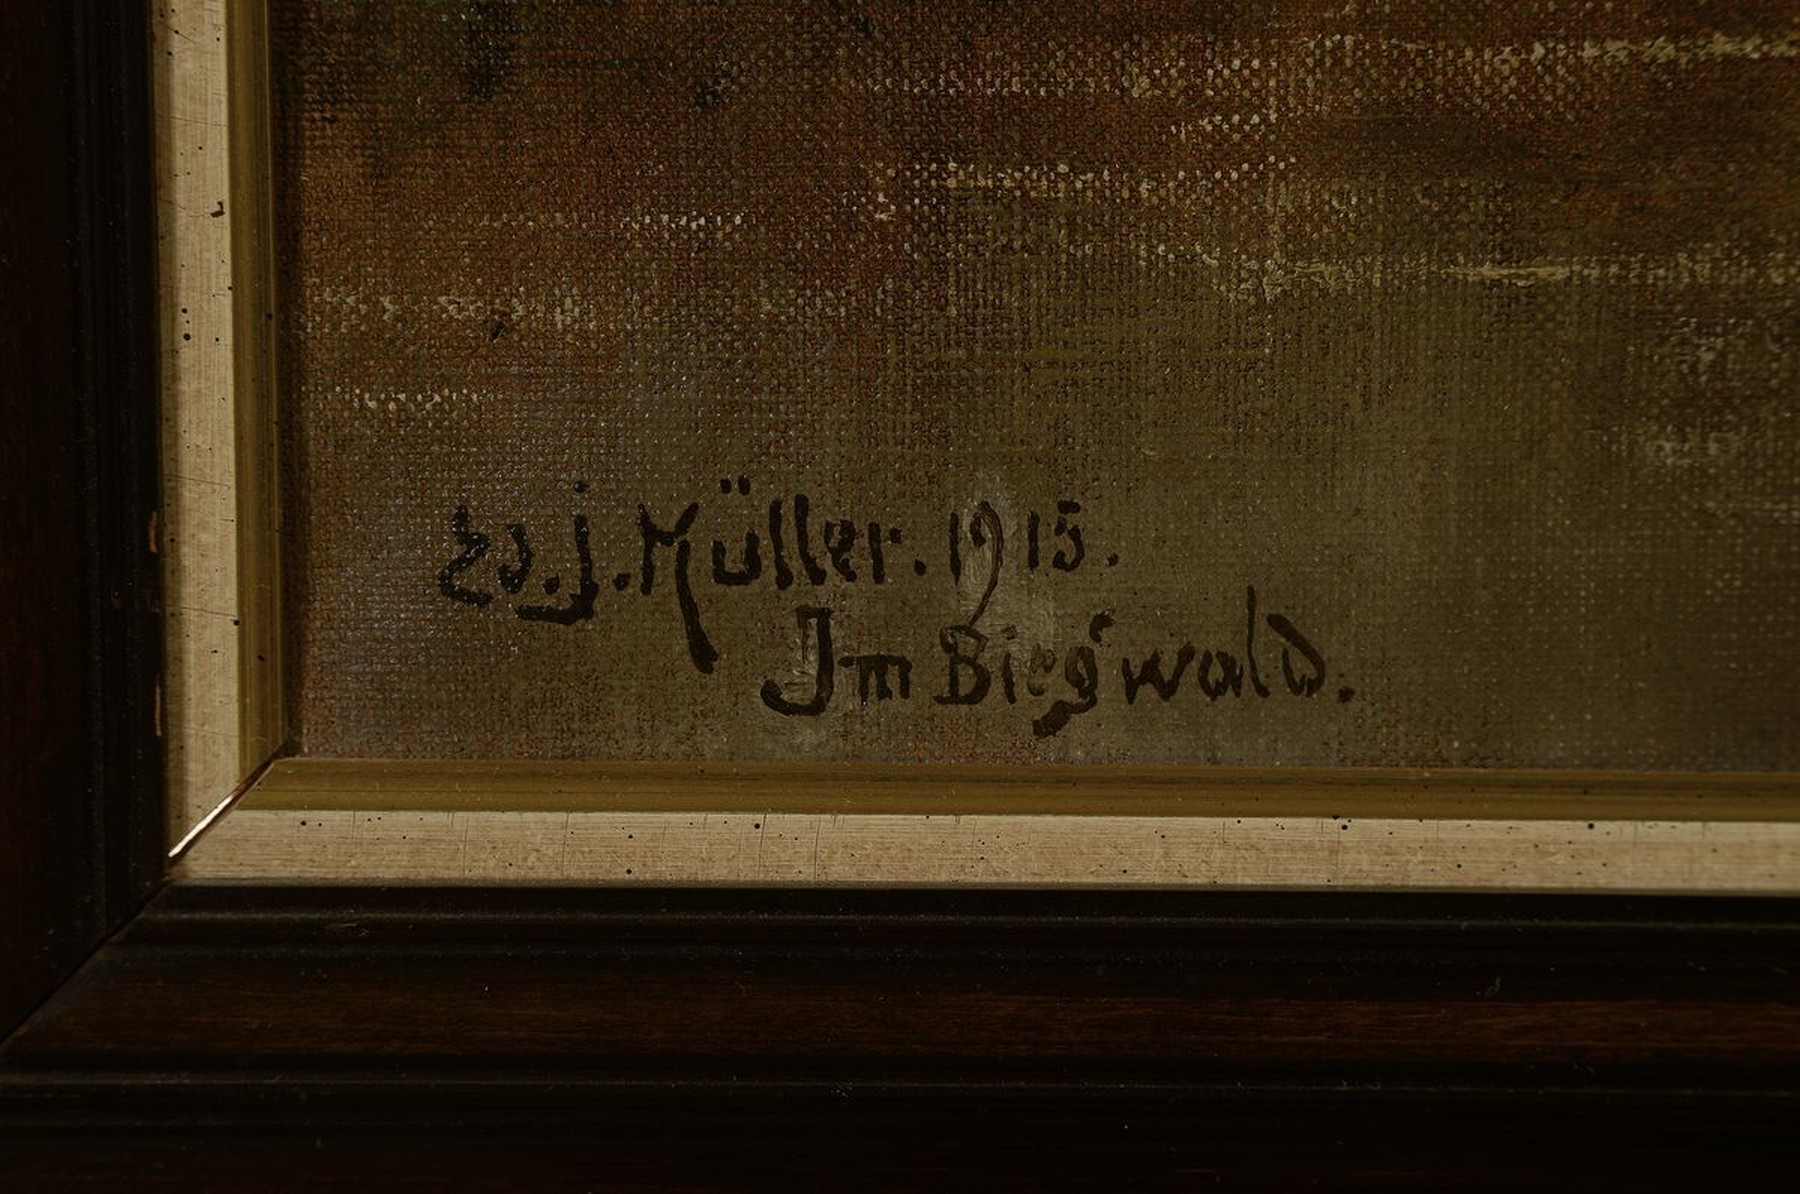 Ed. j. Müller. 1915.
Im Bieg'wald.